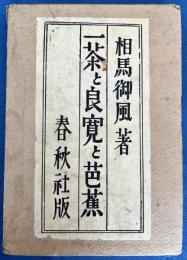 相馬御風著
一茶と良寛と芭蕉
春秋社版